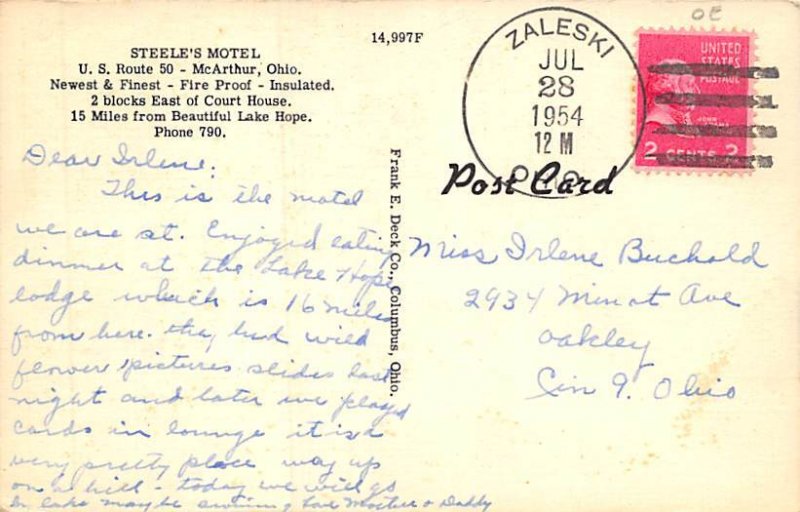 STEELE'S MOTEL
U. S. Route 50 - McArthur, Ohio.
Newest & Finest - Fire Proof - Insulated.
2 blocks East of Court House.
15 Miles from Beautiful Lake Hope.
Phone 790.
14,997F
ZALESKI
JUL
28
1954
12 M
OHIO
OE
UNITED
STATES
POSTAGE
JOHN
2 CENTS 2
Post Card
Frank E. Deck Co., Columbus, Ohio.
Dear Irlene:
This is the motel
we are at. Enjoyed eating
dinner at the Lake Hope
lodge which is 16 miles
from here. they had wild
flower pictures slides last
night and later we played
cards in lounge it is a
very pretty place way up
on a hill - today we will go
in lake maybe swimming Love Mother & Daddy
Miss Irlene Buchold
2934 Minot Ave
Oakley
Cin 9. Ohio